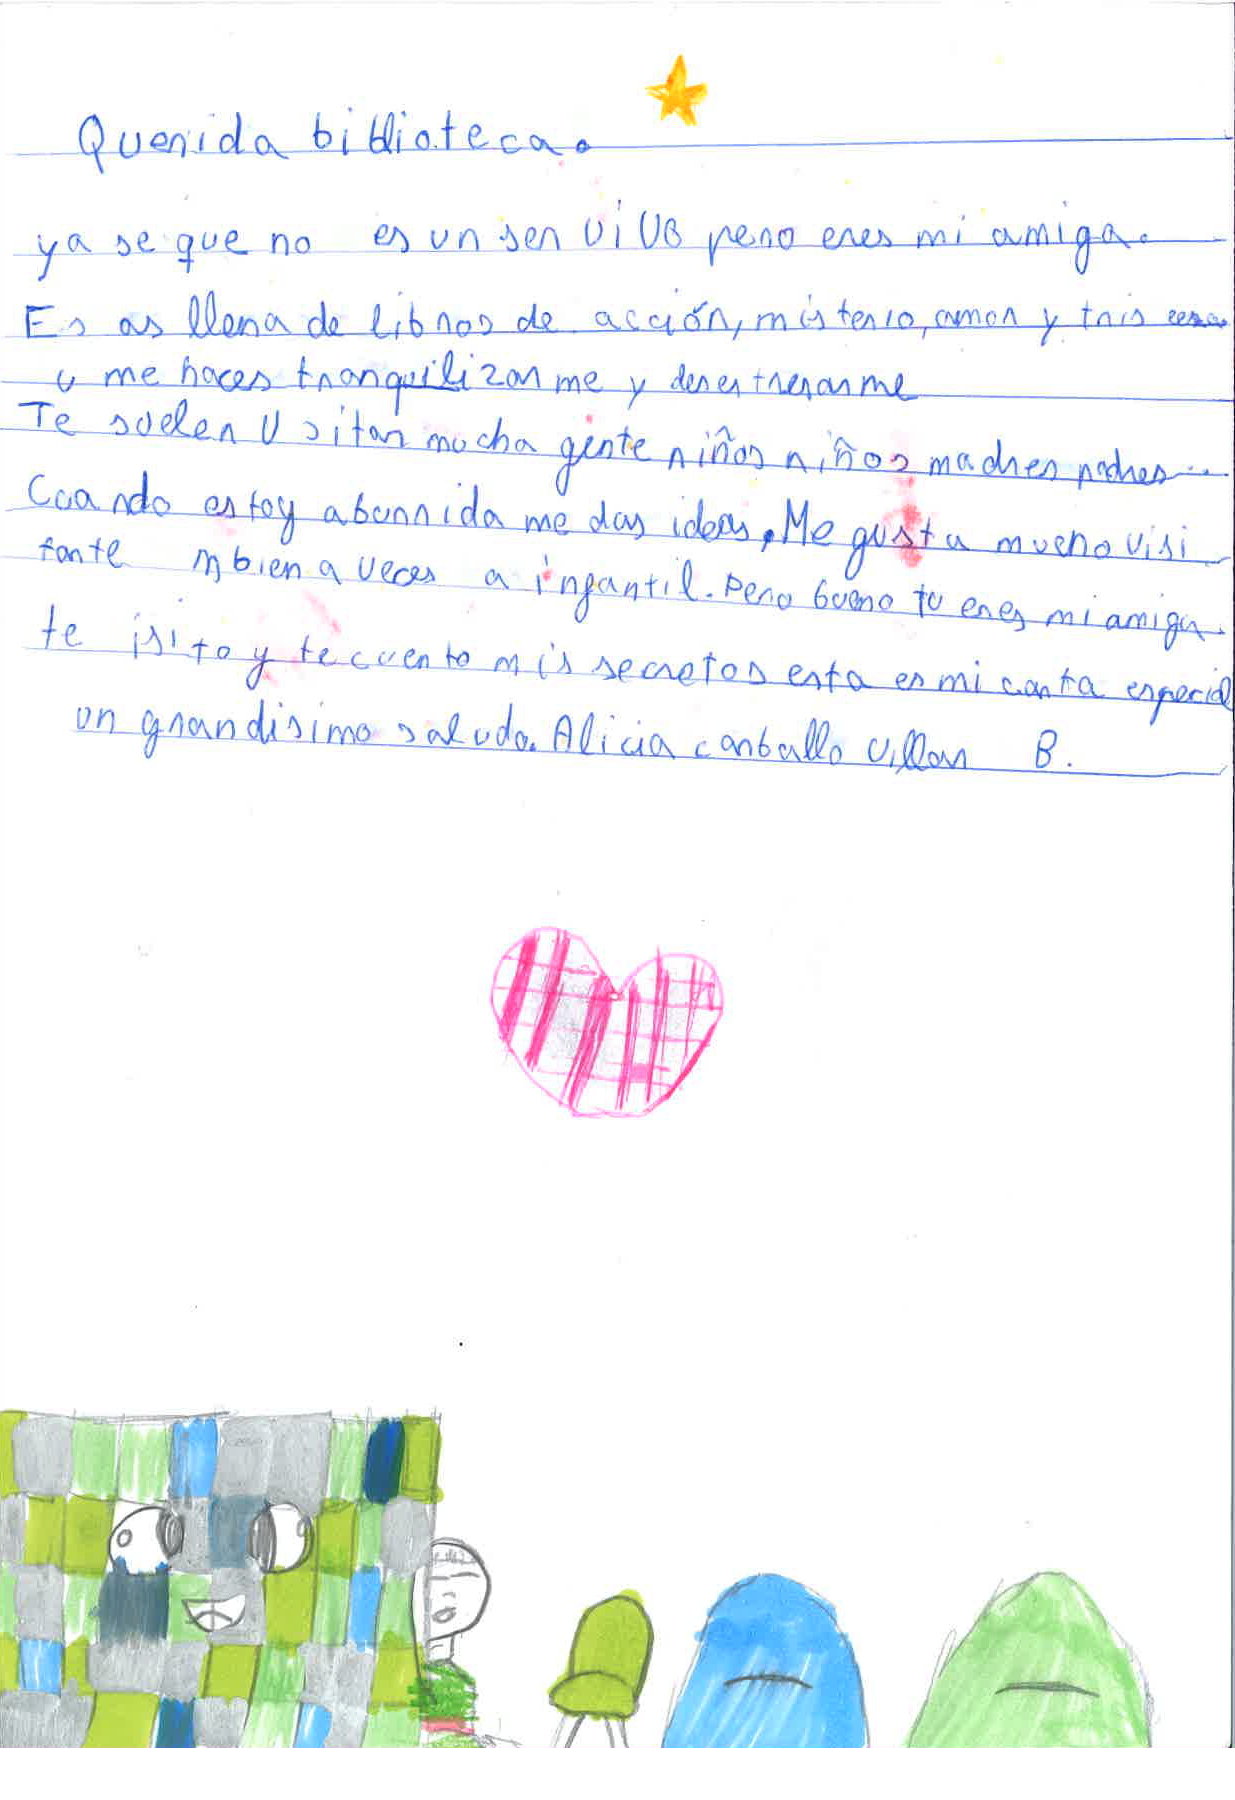 Querida biblioteca.
ya se que no es un ser vivo pero eres mi amiga.
Es as llena de libros de acción, misterio, amor y tris
u me haces tranquilizarme y desestresarme
Te suelen v sitar mucha gente niños niños madres padres...
Cuando estoy aburrida me das ideas, Me gusta mucho visi
tarte mbien a veces a infantil. Pero bueno tu eres mi amiga.
te isito y te cuento mis secretos esta es mi carta especial
un grandisimo saludo. Alicia carballo villar B.